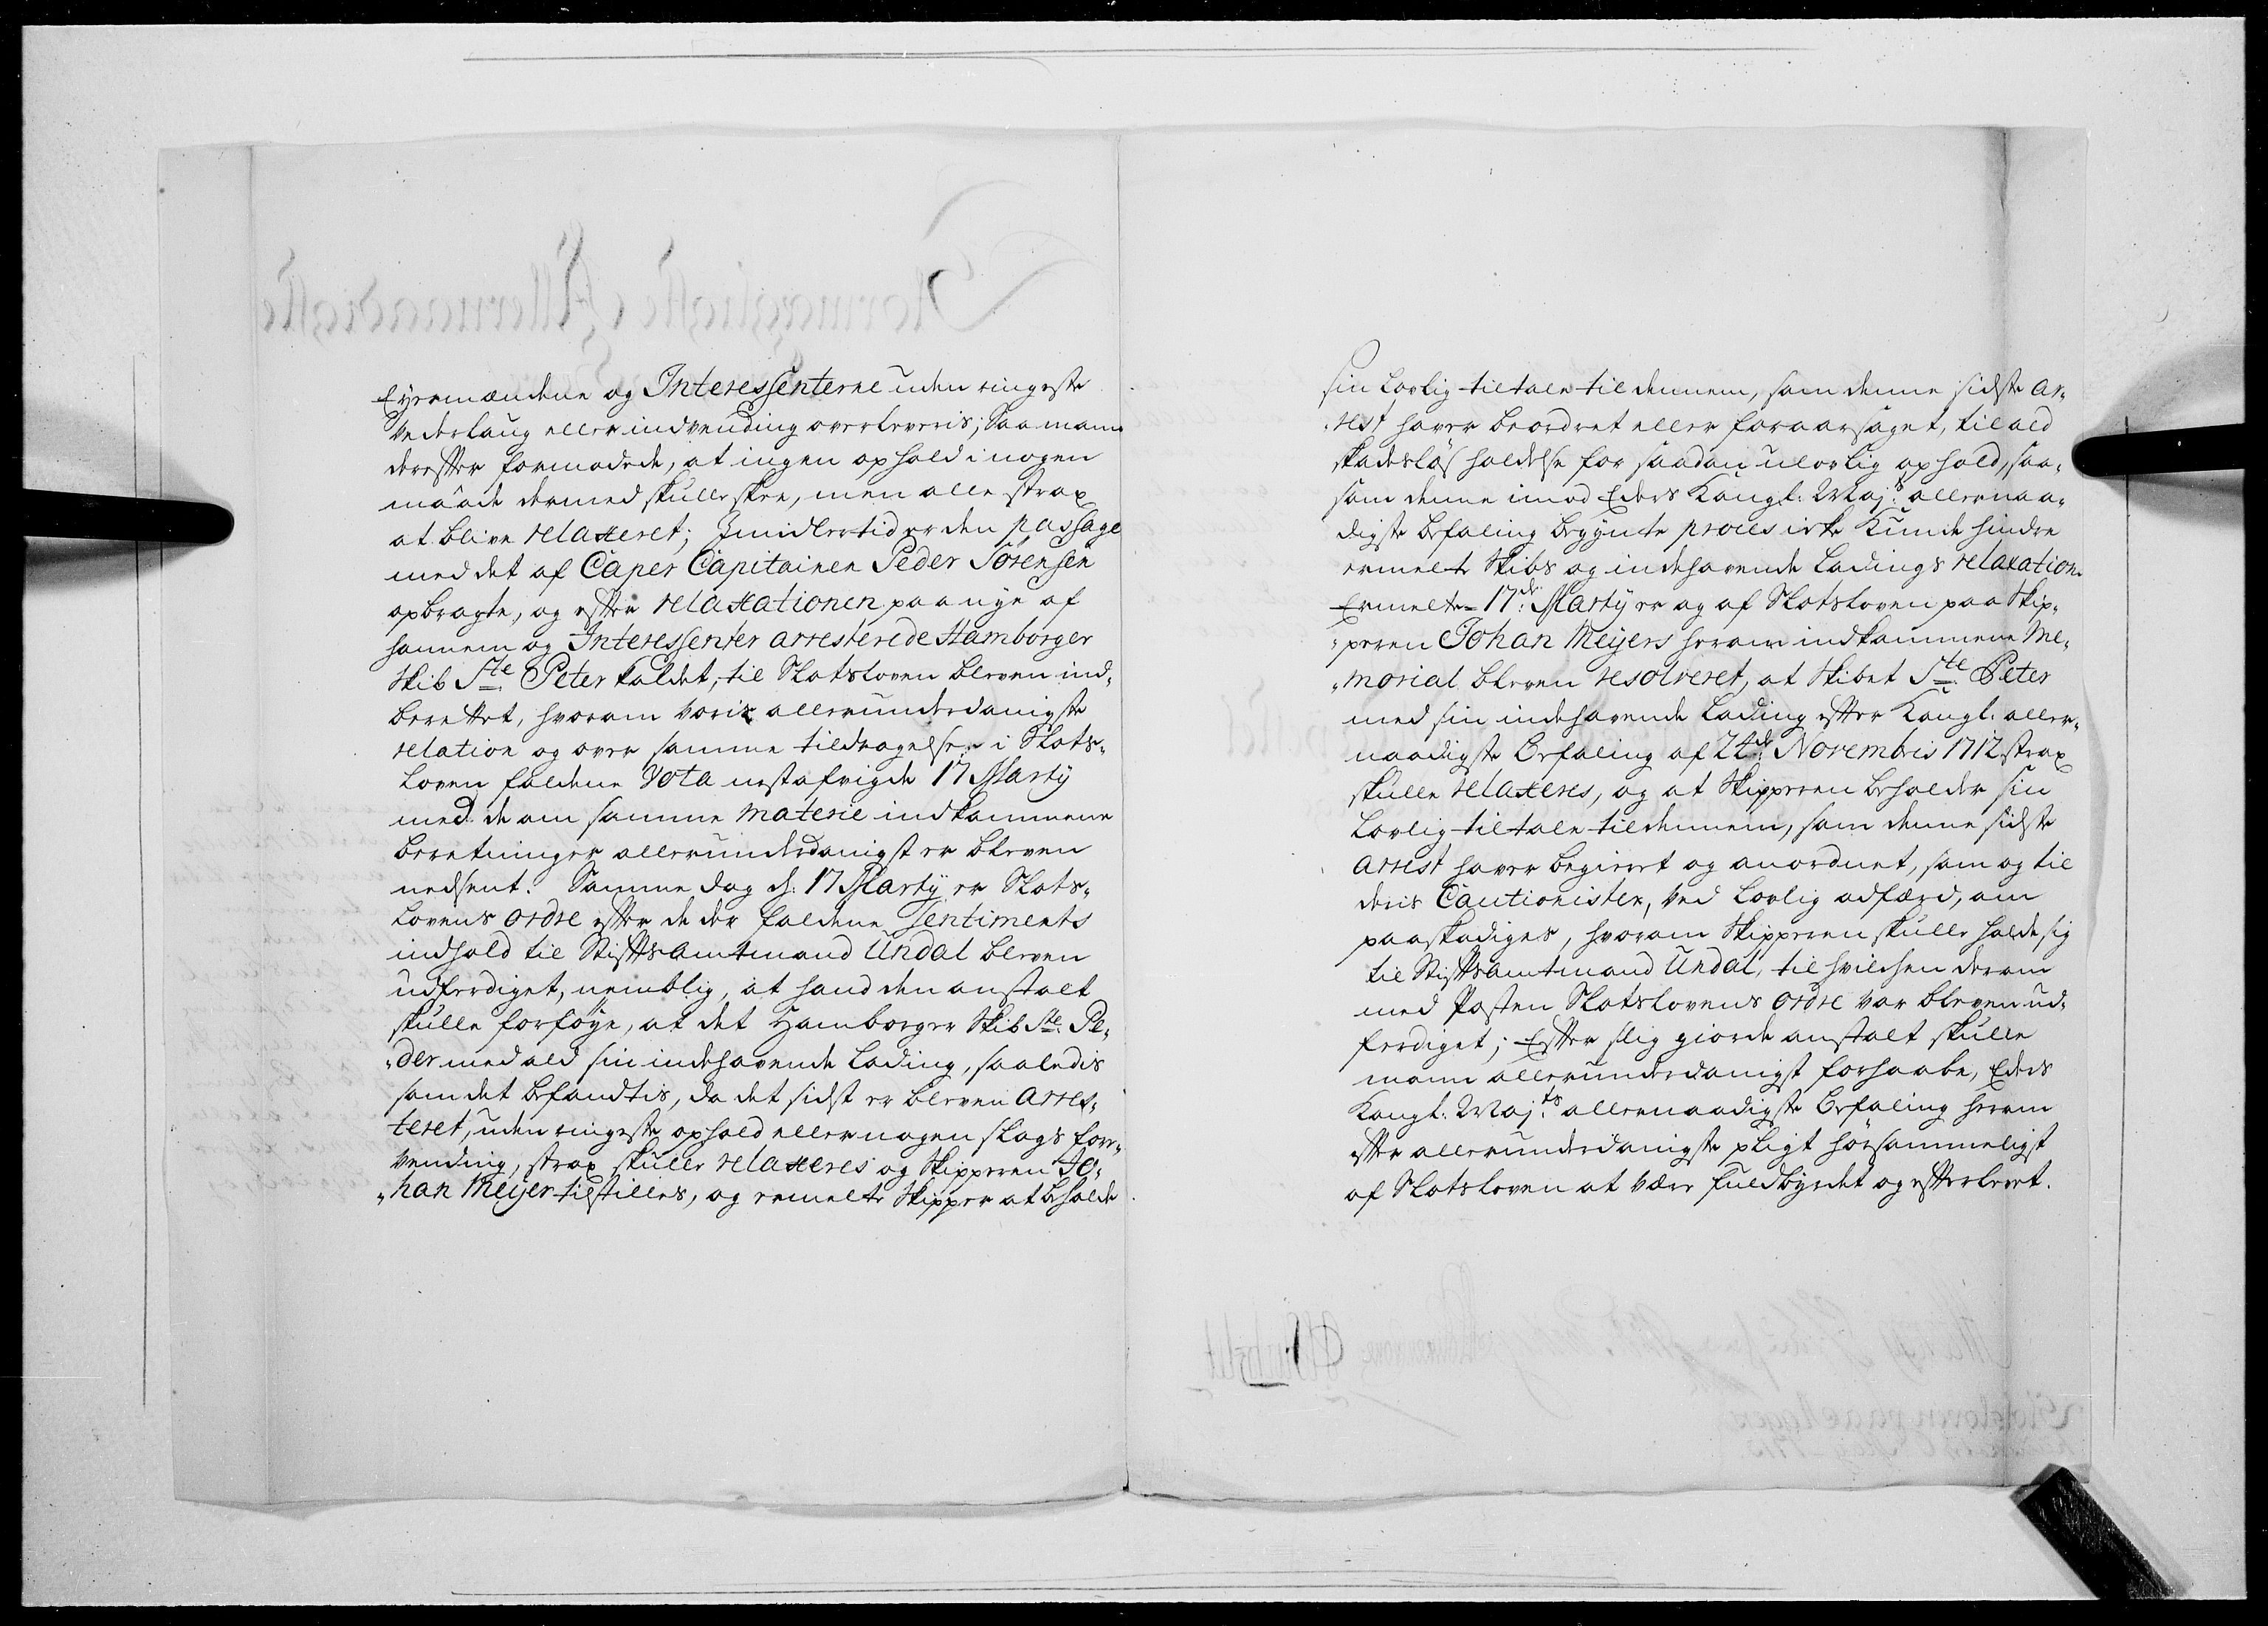 Eyermændene og Interessenterne uden ringeste
Vederlaug eller indvending overleveris; Saa mand
derefter formodede, at ingen ophold i nogen
maade dermed skulle skee, men alle strax
at blive relaxeret; Imidlertid er den passage
med det af Caper Capitainen Peder Sørensen
opbragte, og efter relaxationen paa nye af
hannem og Interessenter arresterede Hamborger
Skib Ste Peter kaldet, til Slotsloven bleven ind-
berettet, hvorom voris allerunderdanigste
relation og over samme tildragelse i Slots-
loven faldene Vota nestafvigte 17 Martij
med de om samme materie indkommene
beretninger allerunderdanigst er bleven
nedsent. Samme dag d: 17 Martij er Slots-
Lovens ordre efter de der faldene Sentiments
indhold til Stiftsamtmand Undal bleven
udferdiget, nemblig, at hand den anstalt
skulle forføye, at det Hamborger Skib Ste Pe-
der med ald sin indehavende Lading, saaledis
som det befandtis, da det sidst er bleven arres-
teret, uden ringeste ophold eller nogen slags fore-
vending, strax skulle relaxeres og Skipperen Jo-
han Meyer tilstilles, og ermelte Skipper at beholde
sin Lovlig tiltale til dennem, som denne sidste ar-
rest haver beordret eller foraarsaget, til ald
skadesløs holdelse for saadan ulovlig ophold, saa-
som denne imod Eders Kongl: Maj:s allernaa-
digste befaling begynte proces icke kunde hindre
ermelte Skibs og indehavende Ladings relaxation.
Ermelte 17de Martij er og af Slotsloven paa Skip-
peren Johan Meyers herom indkommene Me-
morial bleven resolveret, at Skibet Ste Peter
med sin indehavende Lading efter Kongl: aller-
naadigste Befaling af 24de Novembris 1712 strax
skulle relaxeres, og at Skipperen beholder sin
Lovlig tiltale til dennem, som denne sidste
arrest haver begieret og anordnet, som og til
deris Cautionister, ved Lovlig adfærd, om
paaskadiges, hvorom Skipperen skulle holde sig
til Stiftsamtmand Undal, til hvilchen derom
med Posten Slotslovens ordre var bleven ud-
ferdiget; Efter slig giorde anstalt skulle
mann allerunderdanigst forhaabe, Eders
Kongl: Maj:ts allernaadigste Befaling herom
efter allerunderdanigste pligt hørsommeligst
af Slotsloven at være fuldbyrdet og efterlevet.